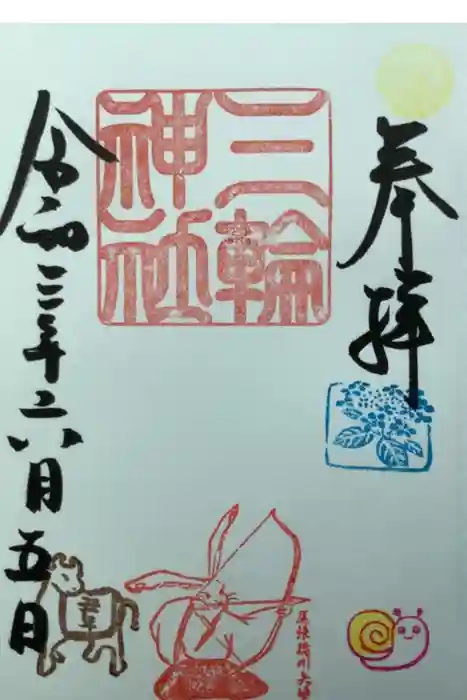 奉拝
三輪
神社
令和三年六月五日